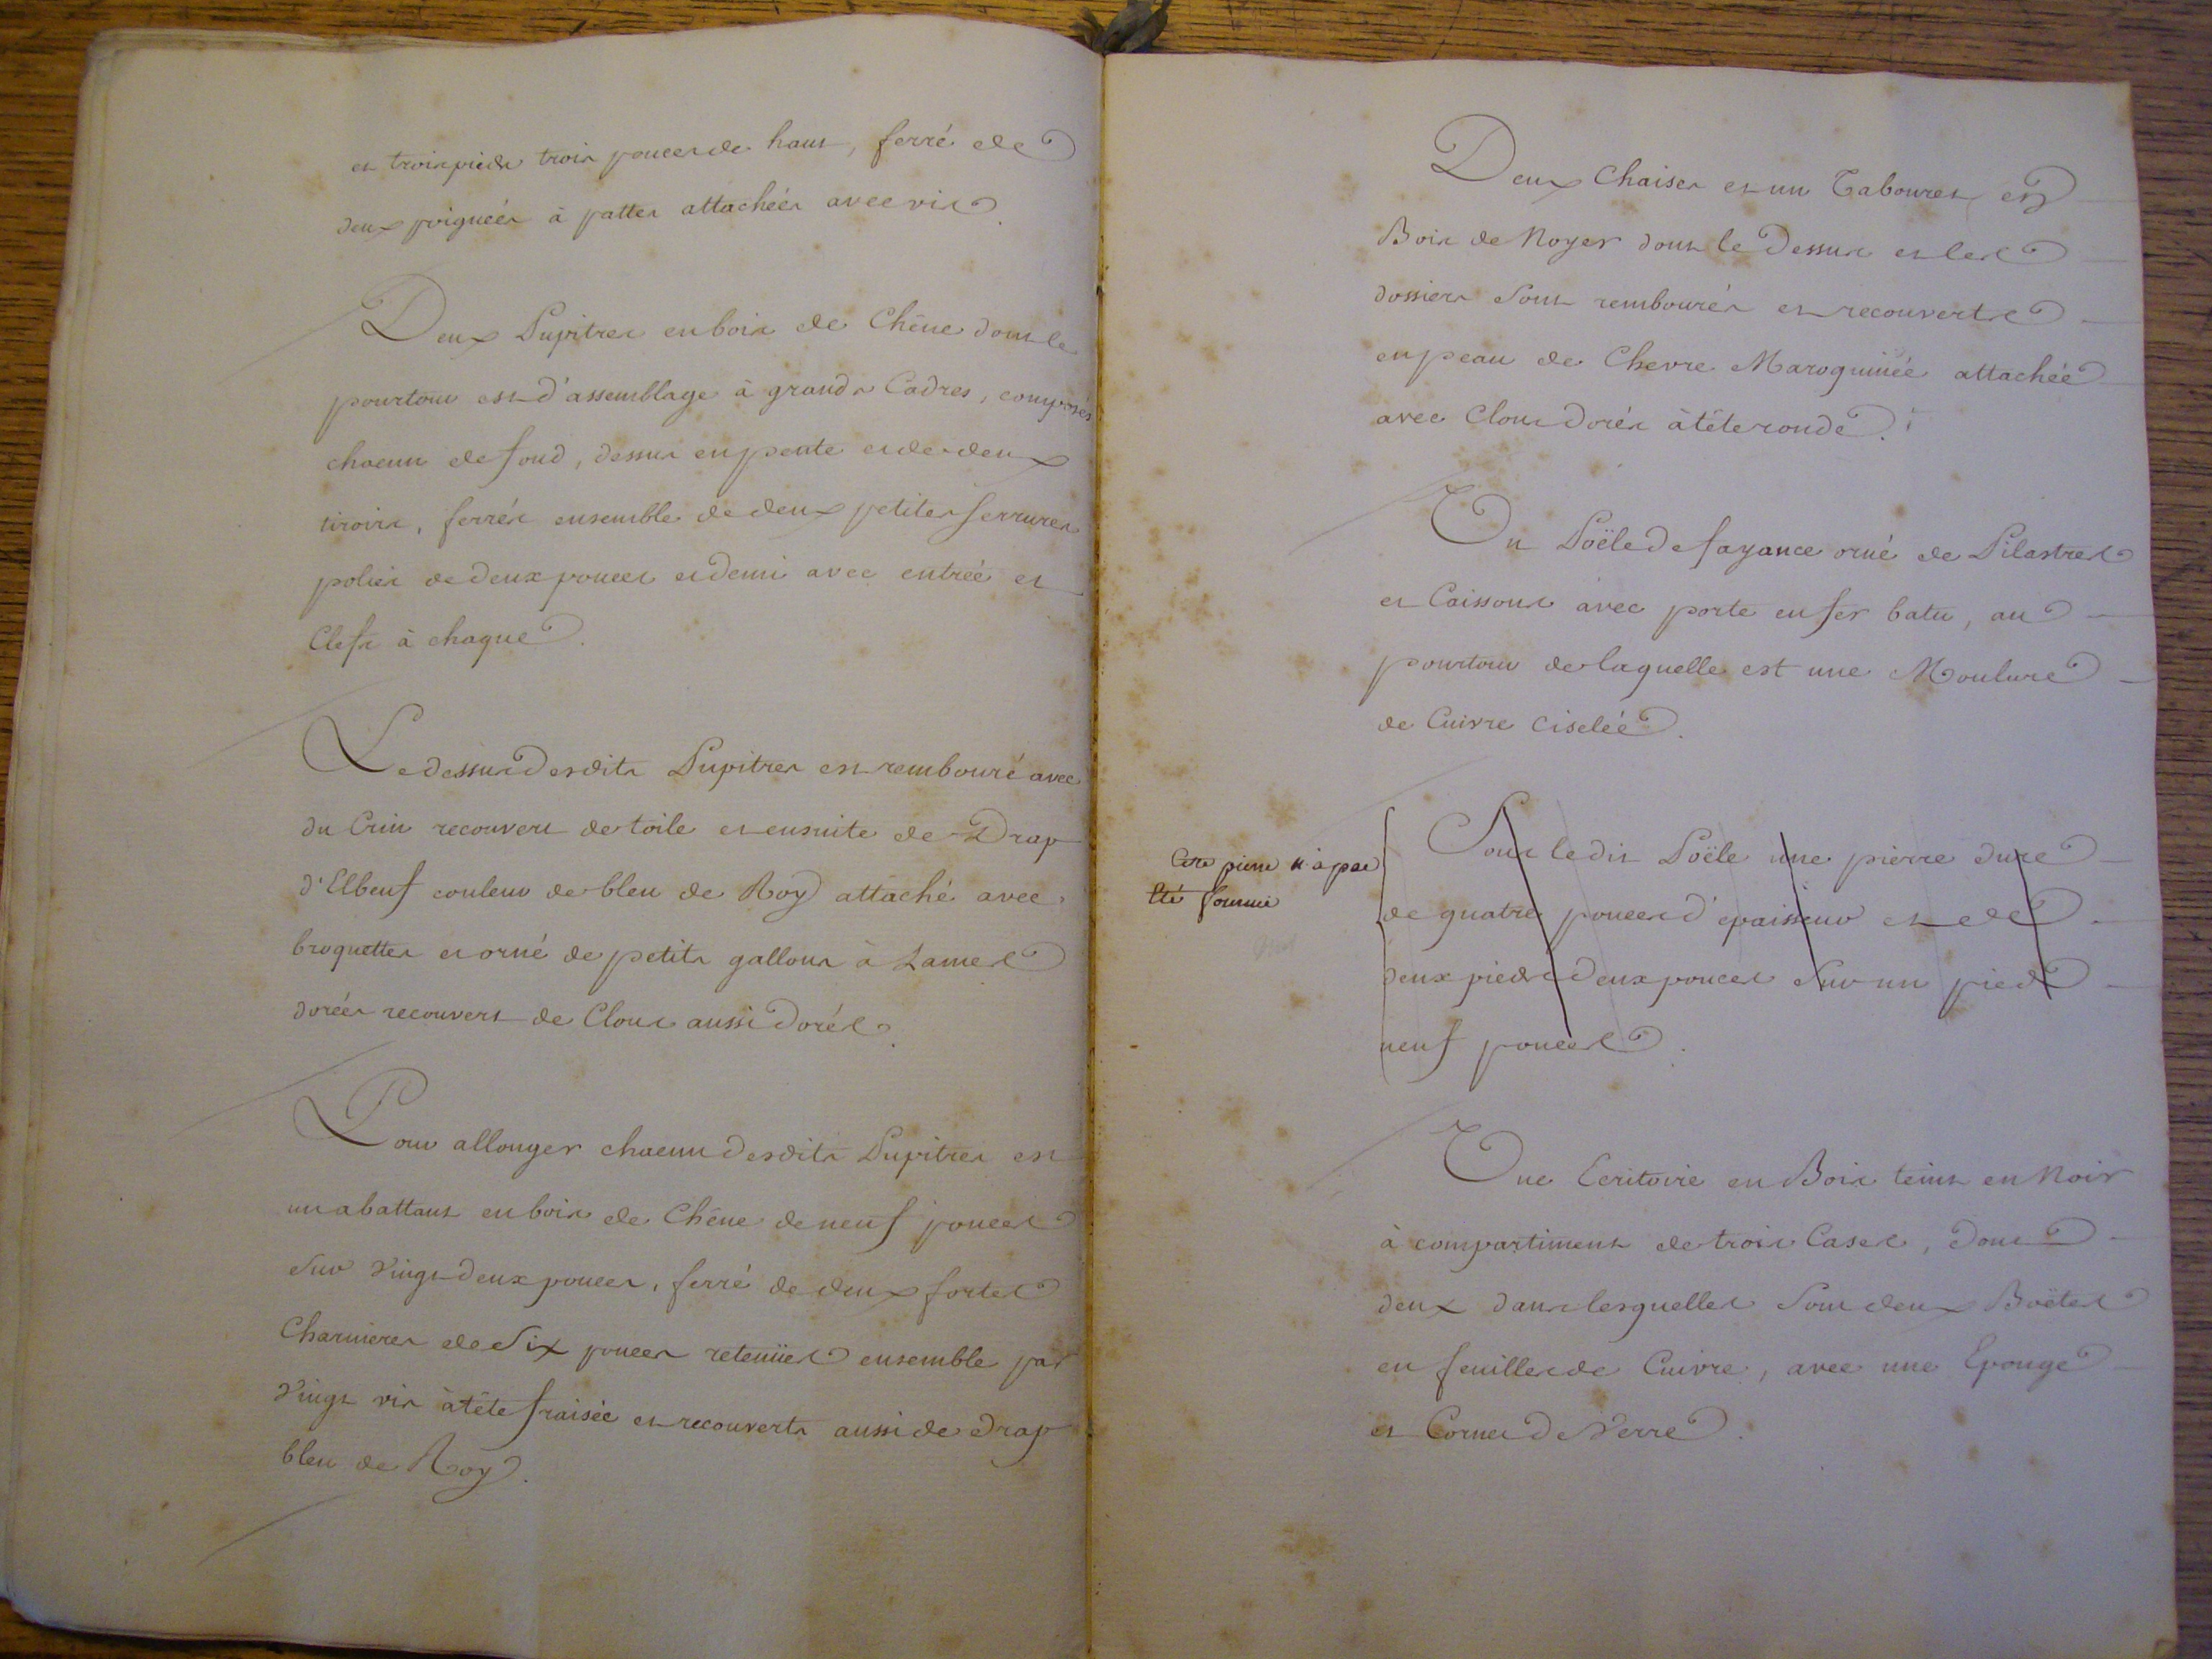 et trois pieds trois pouces de haut, ferré de
deux poignées à pattes attachées avec vis.
Deux Pupitres en bois de Chêne dont le
pourtour est d'assemblage à grands Cadres, composés
chacun de fond, dessus en pente et de deux
tiroirs, ferrés ensemble de deux petites serrures
polies de deux pouces et demi avec entrée et
Clefs à chaque.
Le dessus desdits Pupitres est rembouré avec
du Crin recouvert de toile et ensuite de Drap
d'Elbeuf couleur de bleu de Roy attaché avec
broquettes et orné de petits gallons à Lames
dorées recouvert de Clous aussi Dorés.
Pour allonger chacun desdits Pupitres est
un abattant en bois de Chêne de neuf pouces
sur vingt-deux pouces, ferré de deux fortes
Charnieres de Six pouces retenües ensemble par
vingt vis à tête fraisée et recouverts aussi de drap
bleu de Roy.
Deux Chaises et un Tabouret en
Bois de Noyer dont le Dessus et les
dossiers sont rembourés et recouverts
en peau de Chevre Maroquinée attachée
avec Clous Dorés à tête ronde.
Un Poële de fayance orné de Pilastres
et Caissons avec porte en fer batu, au
pourtour de laquelle est une Moulure
de Cuivre Ciselée.
Cette pierre n'a pas
été fournie
Sous ledit Poële une pierre dure
de quatre pouces d'epaisseur et de
deux pieds deux pouces sur un pied
neuf pouces.
Une Ecritoire en Bois teint en Noir
à compartiment de trois Cases, dont
deux dans lesquelles sont deux Boëtes
en feuilles de Cuivre, avec une Eponge
et Cornet de Verre.